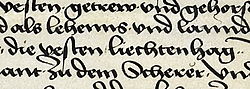 vesten · getrew · und gehors
d als lehenns · und lannd
· die vesten · liechtenhag ·
ant · zu dem Scherer · Vn